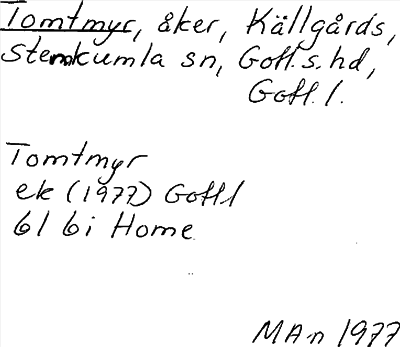 Tomtmyr, åker, Källgårds,
Stenkumla sn, Gotl. s. hd,
Gotl. l.
Tomtmyr
ek (1977) Gotl l
6I 6i Home
MA-n 1977